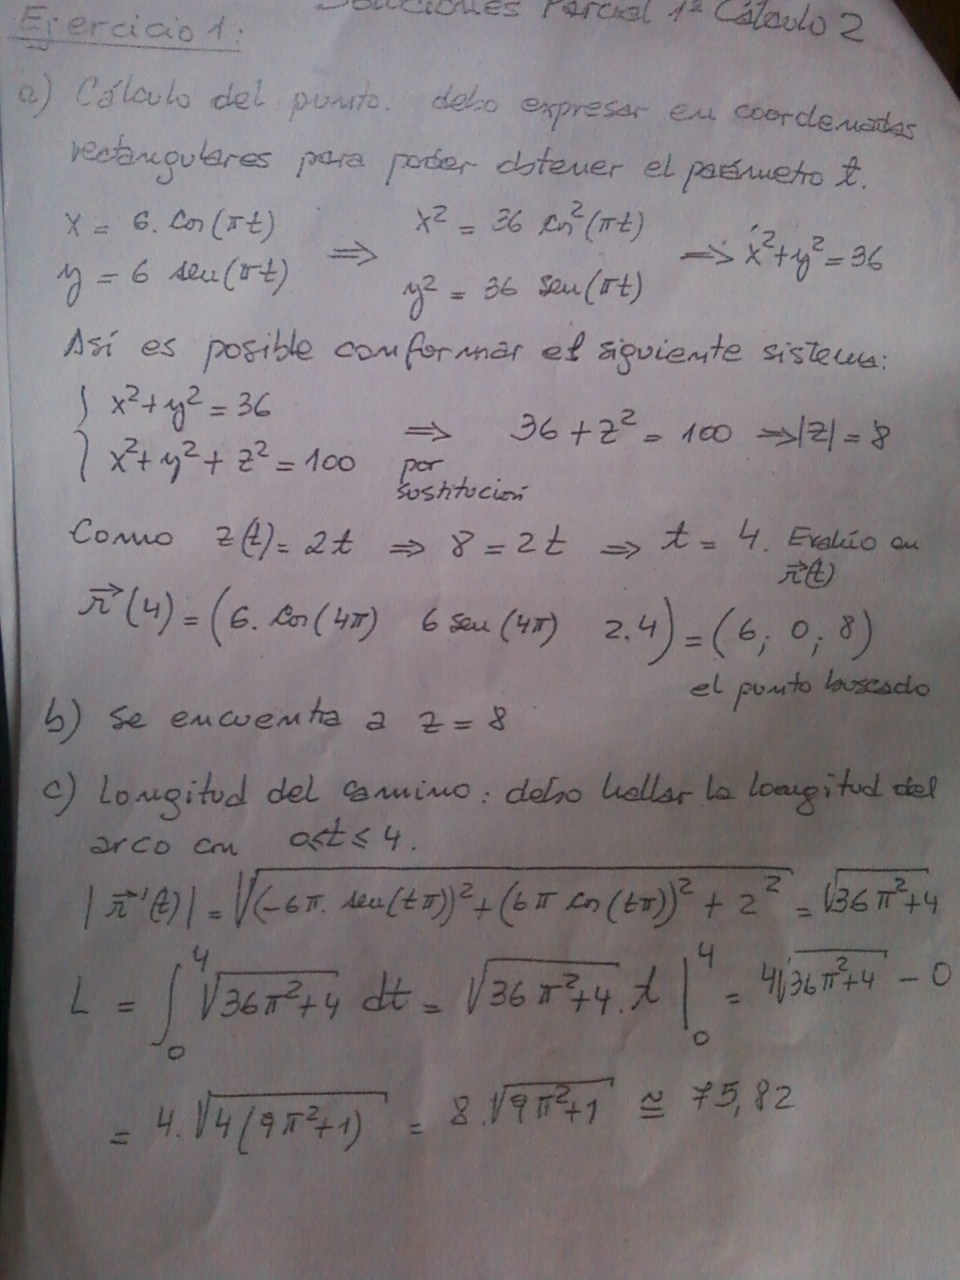 Soluciones Parcial 1º Cálculo 2
Ejercicio 1:
a) Cálculo del punto. debo expresar en coordenadas
rectangulares para poder obtener el parámetro t.
x = 6. cos(πt) ⇒ x² = 36 cos²(πt) ⇒ x²+y²=36
y = 6 sen(πt) y² = 36 sen(πt)
Así es posible conformar el siguiente sistema:
{ x²+y²=36
x²+y²+z²=100 ⇒ por sustitución 36+z²=100 ⇒|z|=8
Como z(t)=2t ⇒ 8=2t ⇒ t=4. Evalúo en
r⃗(t)
r⃗(4)=(6.cos(4π) 6 sen(4π) 2.4)=(6; 0; 8)
el punto buscado
b) se encuentra a z=8
c) Longitud del camino: debo hallar la longitud del
arco con 0≤t≤4.
|r⃗'(t)|=√((-6π. sen(tπ))²+(6π cos(tπ))²+2²)=√(36π²+4)
L = ∫₀⁴ √(36π²+4) dt = √(36π²+4).t |₀⁴ = 4√(36π²+4) - 0
= 4.√(4(9π²+1)) = 8.√(9π²+1) ≅ 75,82